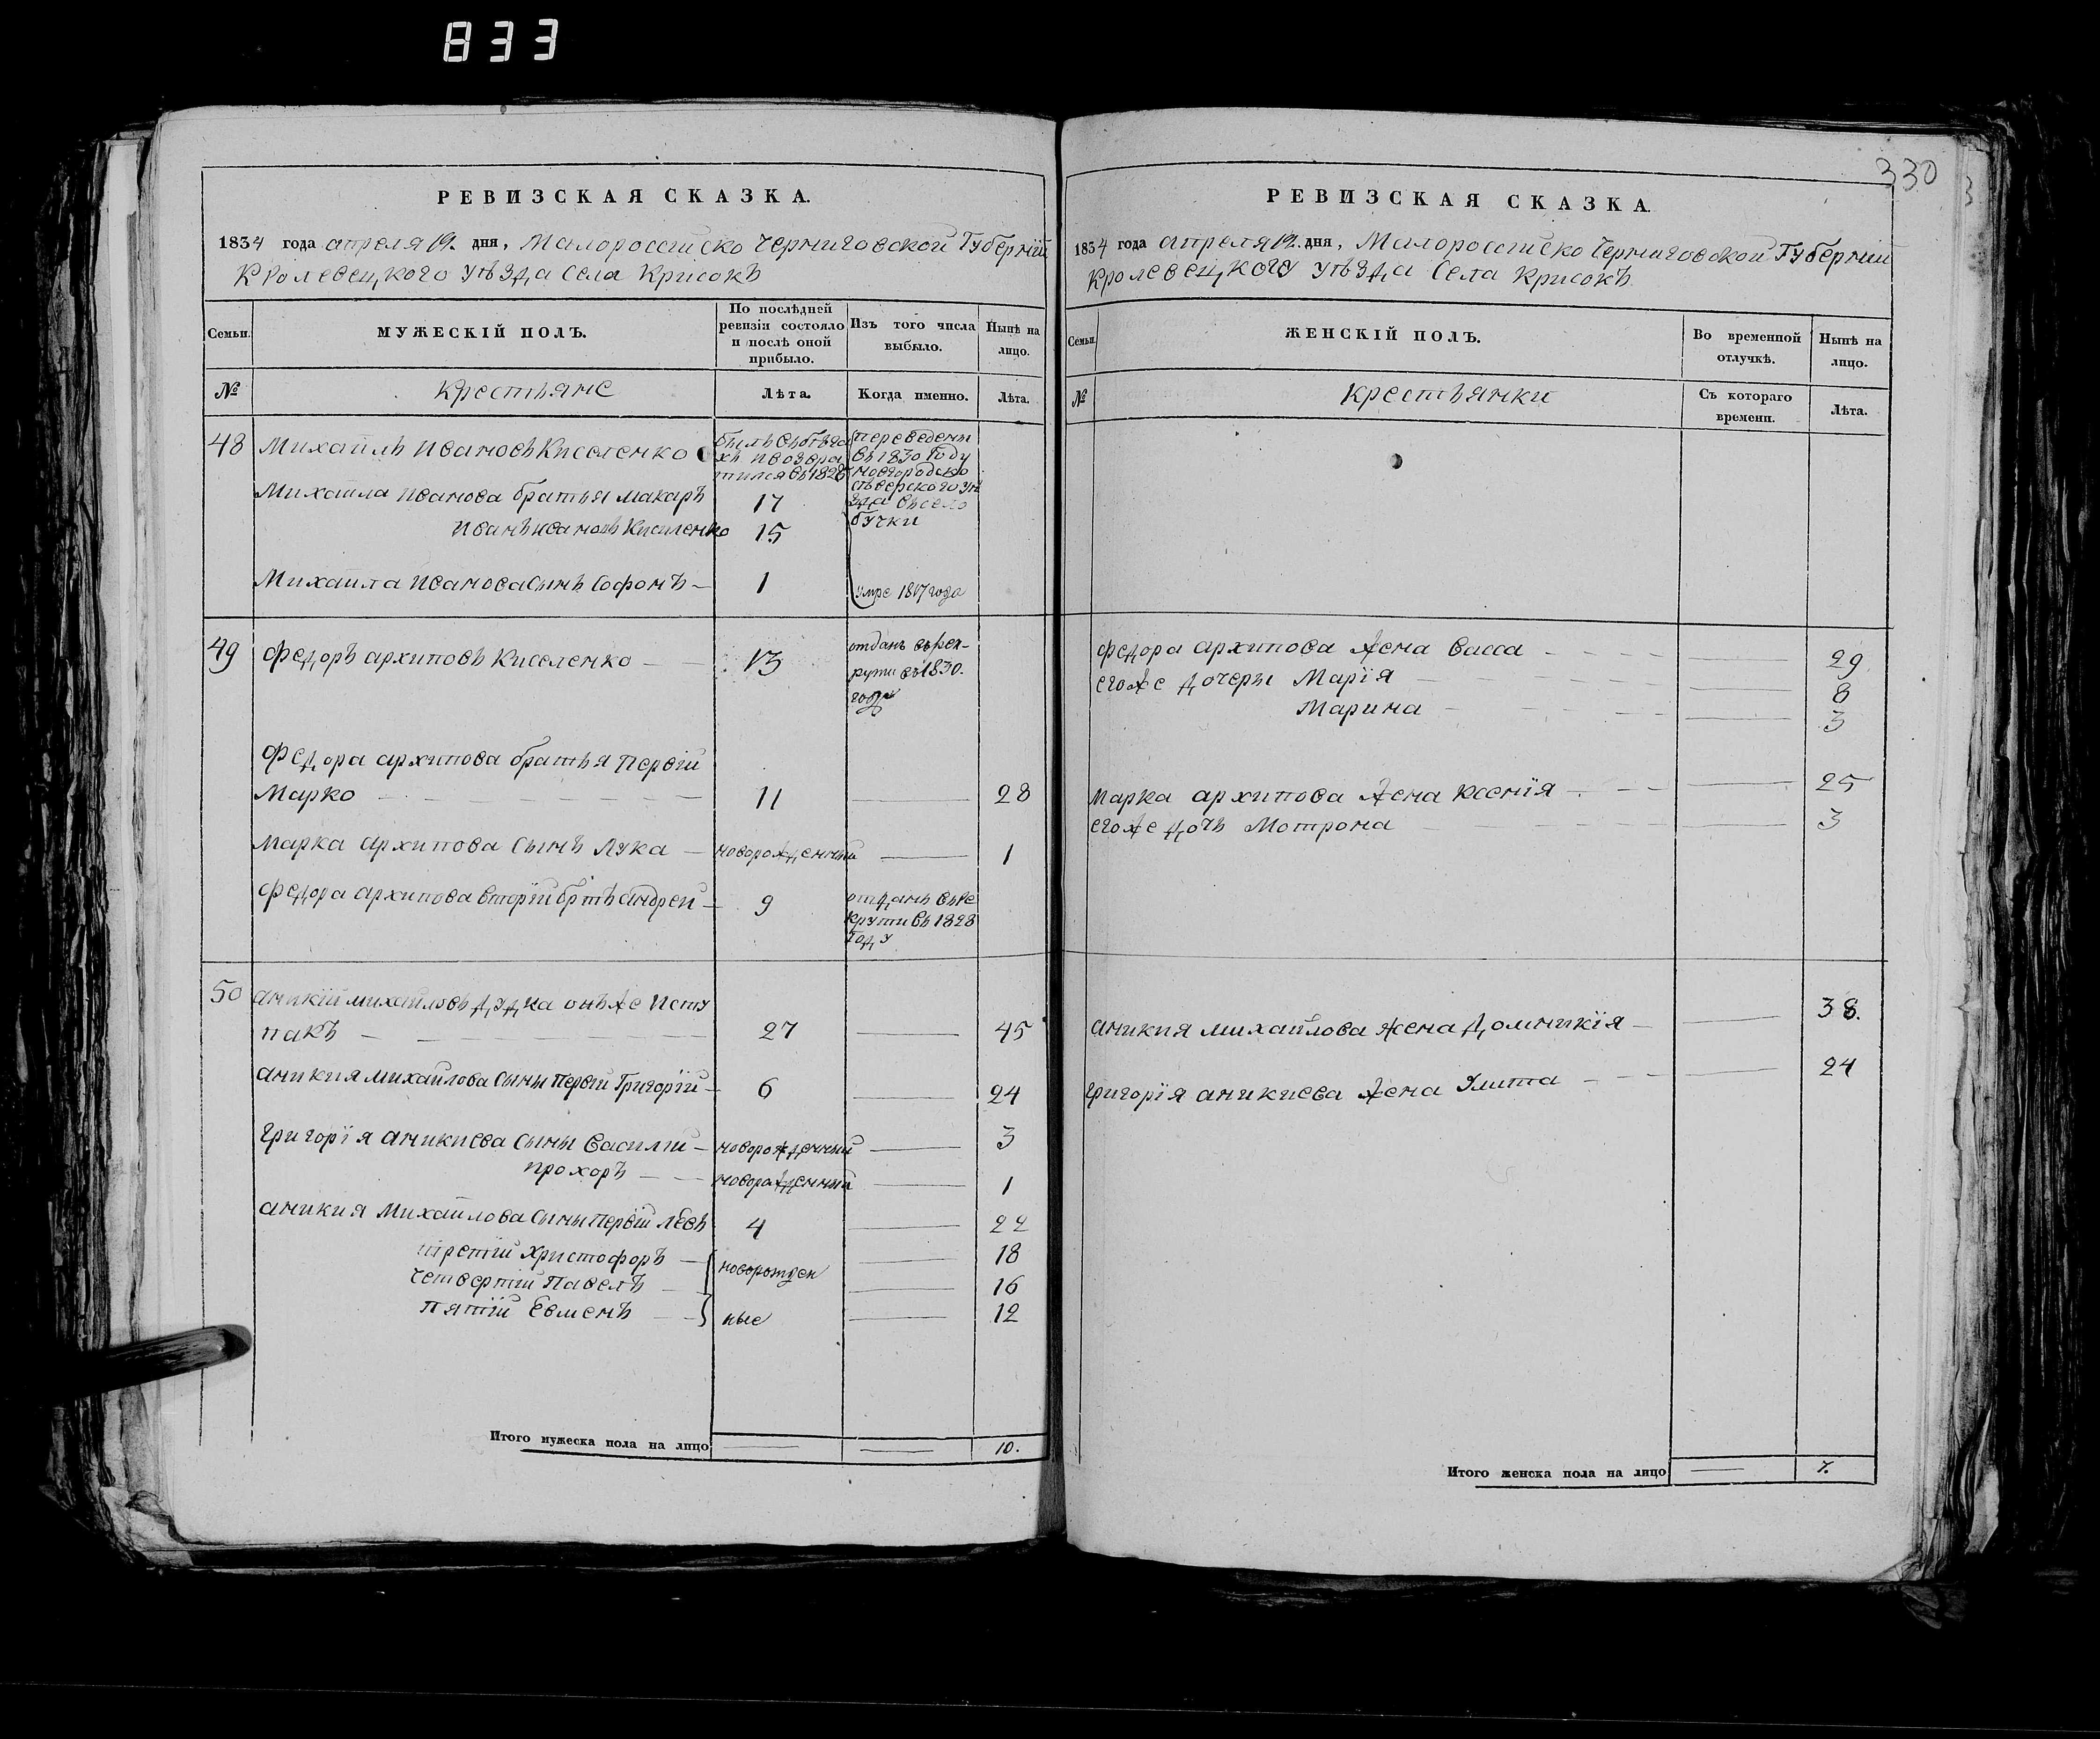 833
330
РЕВИЗСКАЯ СКАЗКА.
1834 года апреля 19. дня, Малороссійско Черниговской Губерніи
Кролевецкого уѣзда села Крисокъ
Семьи.
МУЖЕСКІЙ ПОЛЪ.
По послѣдней ревизіи состояло и послѣ оной прибыло.
Изъ того числа выбыло.
Нынѣ на лицо.
№
крестьяне
Лѣта.
Когда именно.
Лѣта.
48 Михаилъ Ивановъ Киселенко
былъ въ бѣга
хъ и возвра
тился въ 1826
переведены
въ 1830 году
новгородско
сѣверского уѣ
зда въ село
бучки
Михаила Иванова братья Макаръ 17
Иванъ Ивановъ Кисиленко 15
Михаила Иванова сынъ Софонъ — 1 умре 1817 года
49 Федоръ архиповъ Киселенко — 13
отданъ въ рек-
рути въ 1830.
года
Федора архипова братья первій
Марко — 11 — 28
Марка архипова сынъ Лука — новорожденный — 1
Федора архипова вторій братъ андрей — 9
отданъ въ ре
крути въ 1828
году
50 аникій михайловъ дудка онъ же исту
пакъ — 27 — 45
аникия михайлова сыны первій Григорій — 6 — 24
Григорія аникиева сыны василій — новорожденный — 3
прохоръ — новорожденный — 1
аникия Михайлова сыны первій Левъ 4 — 22
третій христофоръ — новорожден — 18
четвертій Павелъ — 16
пятій Евменъ — ные — 12
Итого мужеска пола на лицо — — 10.
РЕВИЗСКАЯ СКАЗКА.
1834 года апреля 19. дня, Малороссійско Черниговской Губерніи
Кролевецкого уѣзда села Крисокъ
Семьи.
ЖЕНСКІЙ ПОЛЪ.
Во временной отлучкѣ.
Нынѣ на лицо.
№
крестьянки
Съ котораго времени.
Лѣта.
Федора архипова жена васса — 29
его же дочеры Марія — 8
Марина — 3
Марка архипова жена ксенія — 25
его же дочь Мотрона — 3
аникия михайлова жена домникія — 38.
григорія аникиева жена Улита — 24
Итого женска пола на лицо — 7.